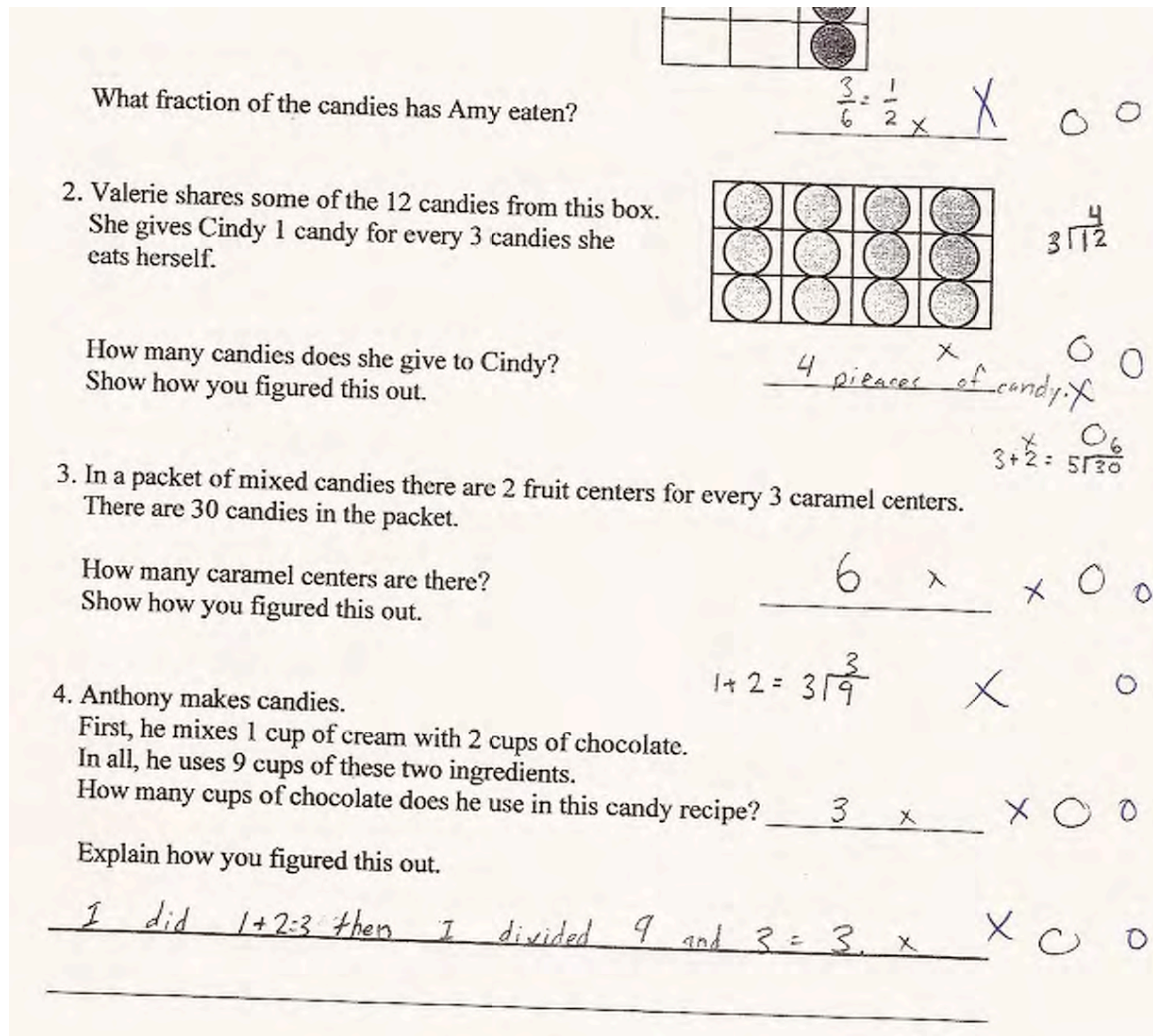 What fraction of the candies has Amy eaten?
3/6 = 1/2 x X 0 0
2. Valerie shares some of the 12 candies from this box.
She gives Cindy 1 candy for every 3 candies she
eats herself.
4
3⟌12
How many candies does she give to Cindy?
Show how you figured this out.
x 0 0
4 pieaces of candy. X
x 0
3+2= 6
5⟌30
3. In a packet of mixed candies there are 2 fruit centers for every 3 caramel centers.
There are 30 candies in the packet.
How many caramel centers are there?
Show how you figured this out.
6 x x 0 0
3
1+2= 3⟌9 X 0
4. Anthony makes candies.
First, he mixes 1 cup of cream with 2 cups of chocolate.
In all, he uses 9 cups of these two ingredients.
How many cups of chocolate does he use in this candy recipe? 3 x x 0 0
Explain how you figured this out.
I did 1+2=3 then I divided 9 and 3 = 3. x X 0 0